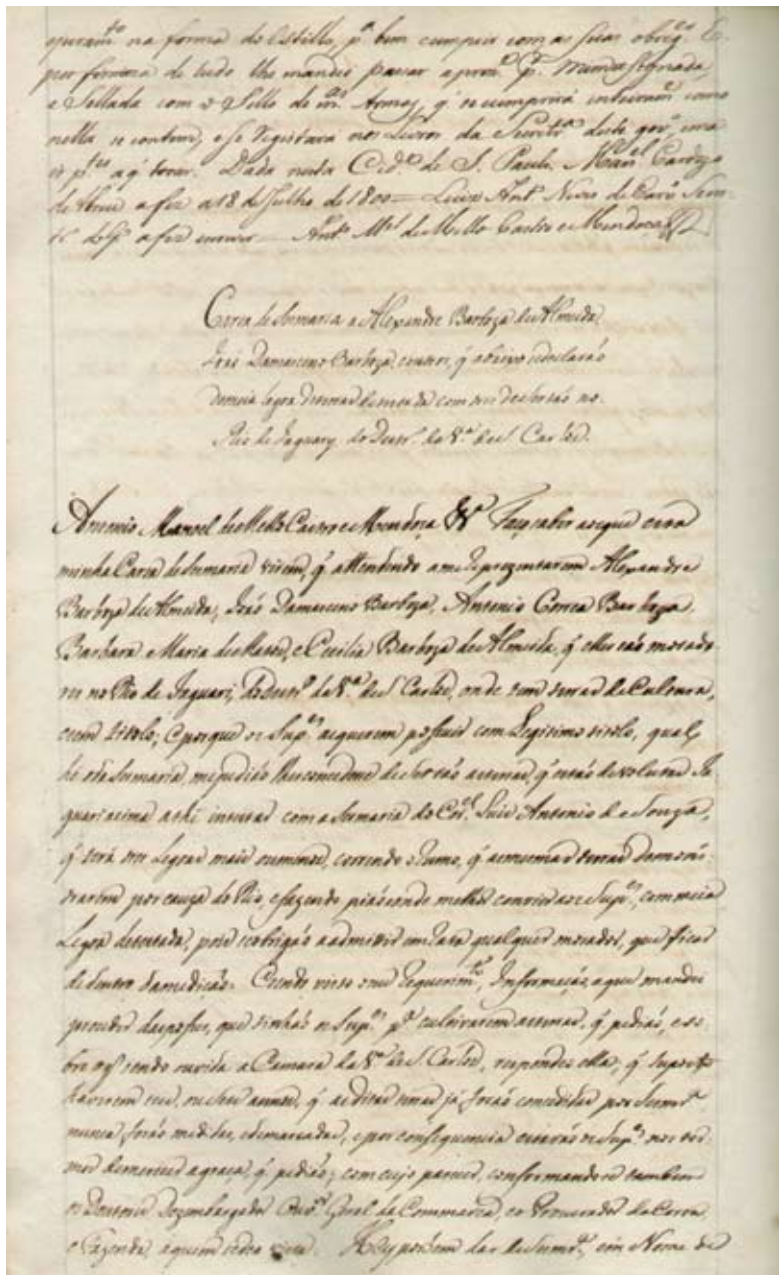 na forma do Estillo, pª bem cumprir com as suas obrigções E
por firmeza de tudo lhe mandei passar a prezte pr mim assignada,
e Sellada com o Sello de mas Armas, q' se cumprirá inteiramte como
nella se contem, e se registará nos Livros da Secretrª deste govº, e
ptes a q' tocar. Dada nesta Cidde de S. Paulo. Manel Cardozo
de Abreu a fez a 18 de Julho de 1800 = Luiz Antº Neves de Carvº Secre-
a fez escrever = Antº Mel de Mello Castro e Mendoça
Carta de Sesmaria a Alexandre Barboza de Almeida,
João Damasceno Barboza, e outros, q' abaixo se declarão
de meia legoa de terras de testada com de Sertão no
Rio de Jaguary do Destrº da Vª de S. Carlos.
Antonio Manoel de Mello Castro e Mendoça &ª Faço saber aos que esta
minha Carta de Sesmaria virem, q' attendendo a me reprezentarem Alexandre
Barboza de Almeida, João Damasceno Barboza, Antonio Correa Barboza,
Barbara e Maria de Matos, e Cecilia Barboza de Almeida, q' elles são morado-
res no Rio de Jaguari, do destrº da Vª de S. Carlos, onde tem terras de Cultura,
e sem titolo; E porque os Supes as querem possuir com Legitimo titolo, qual
he o da Sesmaria, me pedião lhes concedesse de Sertão as terras, q' estão devolutas Ja-
guari acima athé intestar com a Sesmaria do Corel Luis Antonio de Souza,
q' será tres Legoas mais ou menos, correndo o rumo, q' as mesmas terras demons-
trarem por cauza do Rio, e fazendo pião onde melhor convier aos Supes, com meia
Legoa de testada, pois se obrigão a admittir em Paz a qualquer morador, que ficar
de dentro da medição. E sendo visto o seu requerimto, Informação, a que mandei
proceder da posse, que tinhão os Supes pª cultivarem as terras, q' pedião, e so-
bre o q' sendo ouvida a Camara da Vª de S. Carlos, respondeo ella, q' suposto
haverem seis, ou sete annos, q' as ditas terras já forão concedidas por Sesmrª
nunca forão medidas, e demarcadas, e por conseguencia estavão os Supes nos ter-
mos de merecer a graça, q' pedião; com cujo parecer, conformandose tambem
os Doutores Dezembargador Ouvor Geral da Commarca, e o Procurador da Coroa,
e Fazenda, a quem se deo vista. Hey por bem dar de Sesmrª, em Nome de